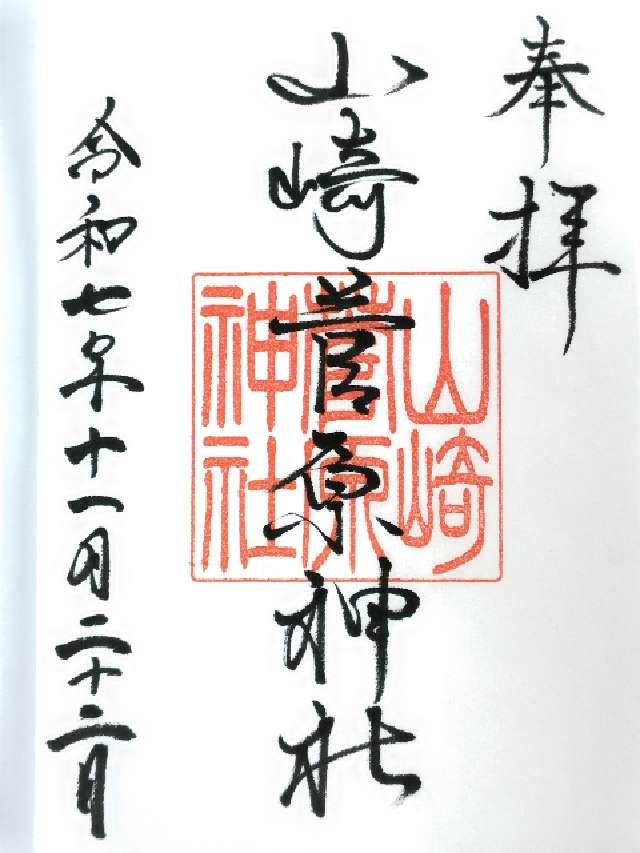 奉拝
山崎菅原神社
山崎
菅原
神社
令和七年十一月二十二日